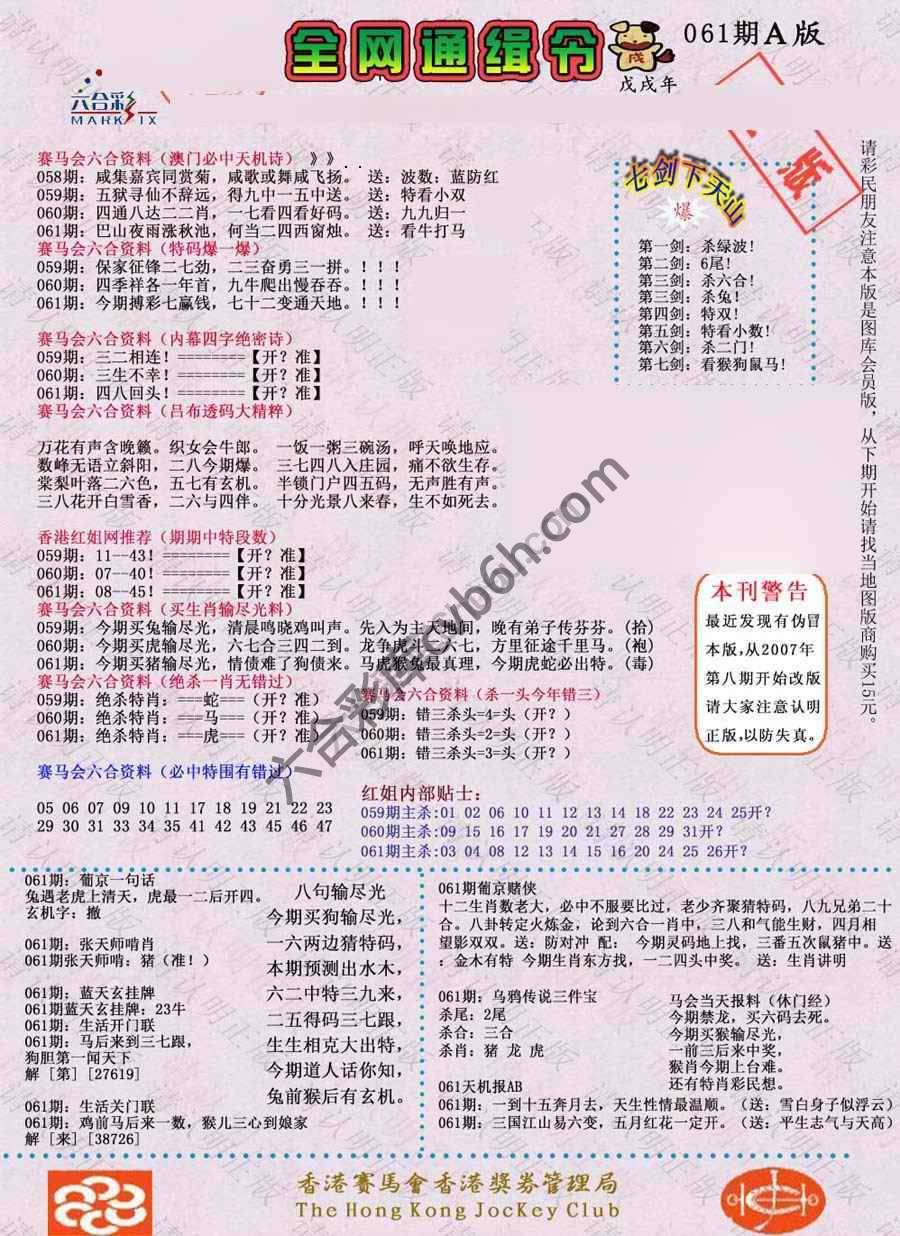 全网通缉令
061期A版
戊戌年
六合彩
MARK SIX
版
赛马会六合资料（澳门必中天机诗）》》
058期: 咸集嘉宾同赏菊, 咸歌或舞咸飞扬。 送: 波数: 蓝防红
059期: 五狱寻仙不辞远, 得九中一五中送。 送: 特看小双
060期: 四通八达二二肖, 一七看四看好码。 送: 九九归一
061期: 巴山夜雨涨秋池, 何当二四西窗烛。 送: 看牛打马
赛马会六合资料（特码爆一爆）
059期: 保家征锋二七劲, 二三奋勇三一拼。！！！
060期: 四季祥各一年首, 九牛爬出慢吞吞。！！！
061期: 今期搏彩七赢钱, 七十二变通天地。！！！
赛马会六合资料（内幕四字绝密诗）
059期: 三二相连! ========【开? 准】
060期: 三生不幸! ========【开? 准】
061期: 四八回头! ========【开? 准】
赛马会六合资料（吕布透码大精粹）
万花有声含晚籁。织女会牛郎。 一饭一粥三碗汤, 呼天唤地应。
数峰无语立斜阳, 二八今期爆。 三七四八入庄园, 痛不欲生存。
棠梨叶落二六色, 五七有玄机。 半锁门户四五码, 无声胜有声。
三八花开白雪香, 二六与四伴。 十分光景八来春, 生不如死去。
香港红姐网推荐（期期中特段数）
059期: 11--43! ========【开? 准】
060期: 07--40! ========【开? 准】
061期: 08--45! ========【开? 准】
赛马会六合资料（买生肖输尽光料）
059期: 今期买兔输尽光, 清晨鸣晓鸡叫声。先入为主天地间, 晚有弟子传芬芬。(拾)
060期: 今期买虎输尽光, 六七合三四二到。龙争虎斗二六七, 方里征途千里马。(袍)
061期: 今期买猪输尽光, 情债难了狗债来。马虎猴兔最真理, 今期虎蛇必出特。(毒)
赛马会六合资料（绝杀一肖无错过）
059期: 绝杀特肖: ===蛇===（开? 准）
060期: 绝杀特肖: ===马===（开? 准）
061期: 绝杀特肖: ===虎===（开? 准）
赛马会六合资料（杀一头今年错三）
059期: 错三杀头=4=头（开?）
060期: 错三杀头=2=头（开?）
061期: 错三杀头=3=头（开?）
赛马会六合资料（必中特围有错过）
05 06 07 09 10 11 17 18 19 21 22 23
29 30 31 34 35 41 42 43 45 46 47
红姐内部贴士:
059期主杀:01 02 06 10 11 12 13 14 18 22 23 24 25开?
060期主杀:09 15 16 17 19 20 21 27 28 29 31开?
061期主杀:03 04 08 12 13 14 15 16 20 24 25 26开?
七剑下天山
爆
第一剑: 杀绿波!
第二剑: 6尾!
第三剑: 杀六合!
第三剑: 杀兔!
第四剑: 特双!
第五剑: 特看小数!
第六剑: 杀二门!
第七剑: 看猴狗鼠马!
请彩民朋友注意本版是图库会员版，从下期开始请找当地图版商购买15元。
本刊警告
最近发现有伪冒
本版,从2007年
第八期开始改版
请大家注意认明
正版,以防失真。
六合彩库cvb6h.com
061期: 葡京一句话
兔遇老虎上清天, 虎最一二后开四。
玄机字: 撤
061期: 张天师啃肖
061期张天师啃: 猪（准!）
061期: 蓝天玄挂牌
061期蓝天玄挂牌: 23牛
061期: 生活开门联
061期: 马后来到三七跟,
狗胆第一闻天下
解 [第] [27619]
061期: 生活关门联
061期: 鸡前马后来一数, 猴儿三心到娘家
解 [来] [38726]
八句输尽光
今期买狗输尽光,
一六两边猜特码,
本期预测出水木,
六二中特三九来,
二五得码三七跟,
生生相克大出特,
今期道人话你知,
兔前猴后有玄机。
061期葡京赌侠
十二生肖数老大, 必中不服要比过, 老少齐聚猜特码, 八九兄弟二十
合。八卦转定火炼金, 论到六合一肖中, 三八和气能生财, 四月相
望影双双。送: 防对冲 配: 今期灵码地上找, 三番五次鼠猪中。送
: 金木有特 今期生肖东方找, 一二四头中奖。 送: 生肖讲明
061期: 乌鸦传说三件宝
杀尾: 2尾
杀合: 三合
杀肖: 猪 龙 虎
马会当天报料（休门经）
今期禁龙, 买六码去死。
今期买猴输尽光,
一前三后来中奖,
猴肖今期上台难。
还有特肖彩民想。
061天机报AB
061期: 一到十五奔月去, 天生性情最温顺。（送: 雪白身子似浮云）
061期: 三国江山易六变, 五月红花一定开。（送: 平生志气与天高）
香港賽馬會香港獎券管理局
The Hong Kong JocKey Club